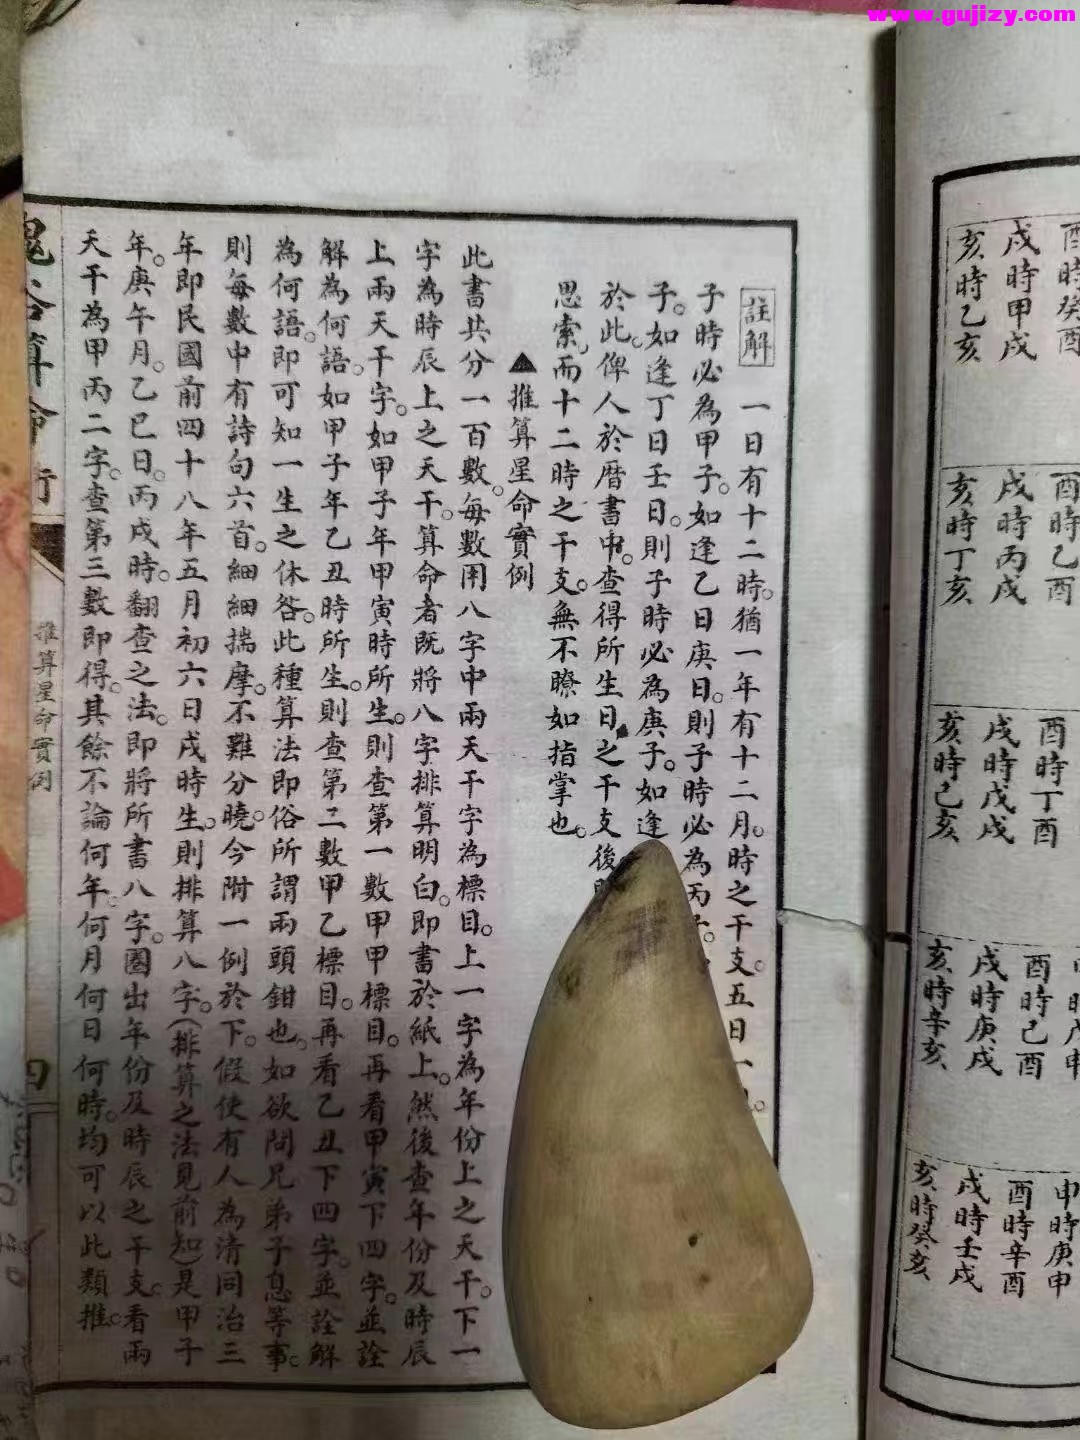 www.gujizy.com
酉時癸酉
戌時甲戌
亥時乙亥
酉時乙酉
戌時丙戌
亥時丁亥
酉時丁酉
戌時戊戌
亥時己亥
酉時己酉
戌時庚戌
亥時辛亥
申時庚申
酉時辛酉
戌時壬戌
亥時癸亥
註解 一日有十二時。猶一年有十二月。時之干支。五日一
子時必為甲子。如逢乙日庚日。則子時必為丙子。
子。如逢丁日壬日。則子時必為庚子。如逢
於此。俾人於曆書中。查得所生日之干支後
思索。而十二時之干支。無不瞭如指掌也。
▲推算星命實例
此書共分一百數。每數用八字中兩天干字為標目。上一字為年份上之天干。下一
字為時辰上之天干。算命者既將八字排算明白。即書於紙上。然後查年份及時辰
上兩天干字。如甲子年甲寅時所生。則查第一數甲甲標目。再看甲寅下四字。並詮
解為何語。如甲子年乙丑時所生。則查第二數甲乙標目。再看乙丑下四字。並詮解
為何語。即可知一生之休咎。此種算法即俗所謂兩頭鉗也。如欲問兄弟子息等事。
則每數中有詩句六首。細細揣摩。不難分曉。今附一例於下。假使有人為清同治三
年即民國前四十八年五月初六日戌時生。則排算八字。(排算之法見前知)是甲子
年。庚午月。乙巳日。丙戌時。翻查之法。即將所書八字。圈出年份及時辰之干支。看兩
天干為甲丙二字。查第三數即得。其餘不論何年。何月何日何時。均可以此類推。
鬼谷算命術
推算星命實例
四